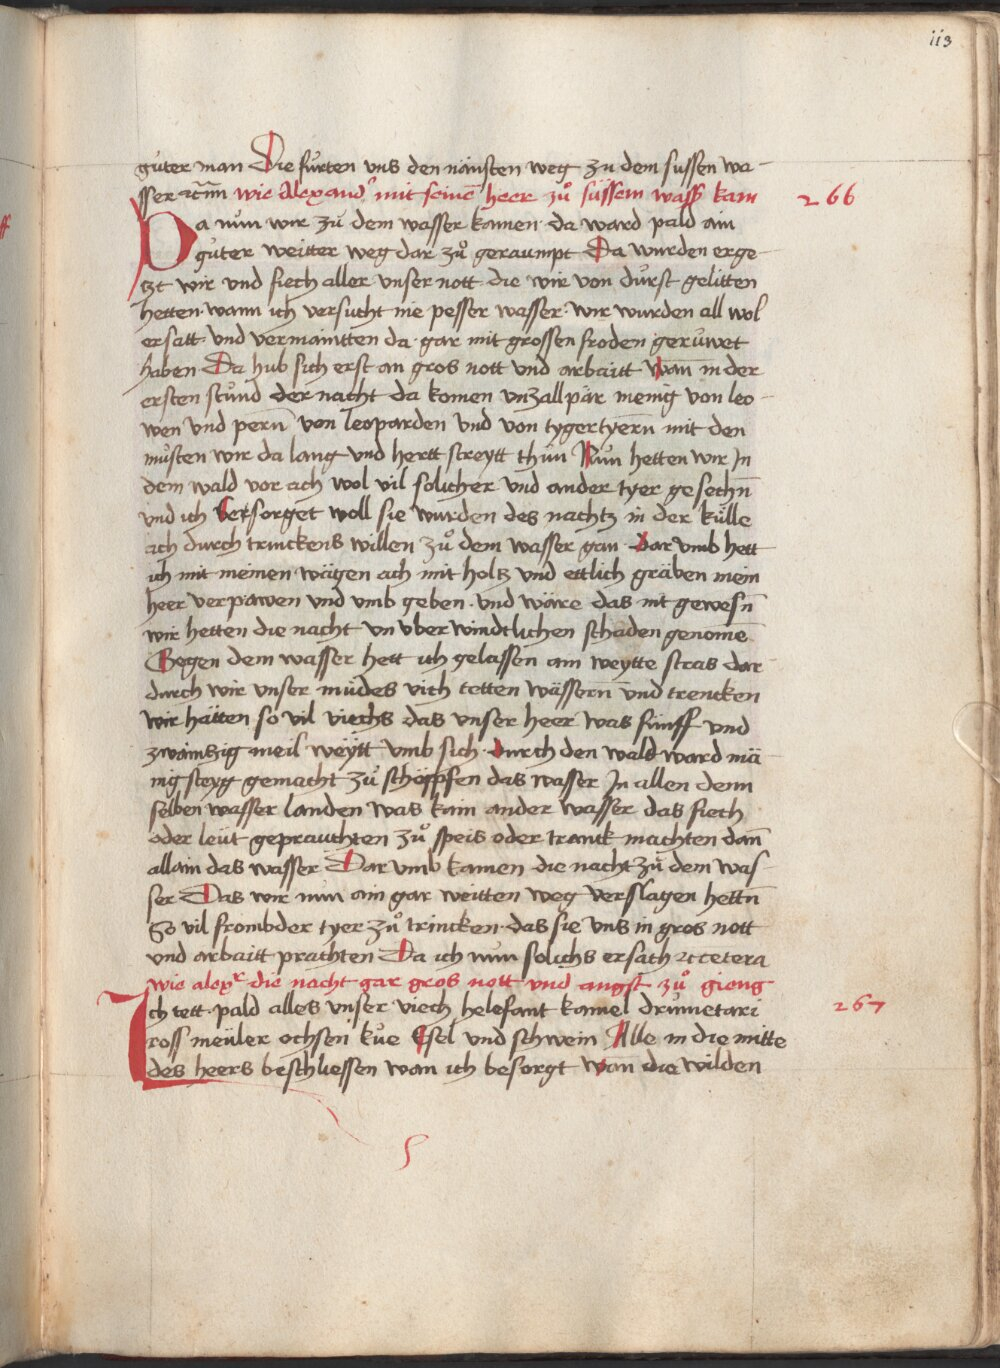 113
guter man Die fůrten vns den nänsten weg zu dem sussen wa-
sser wie Alexand' mit seinē heer zů süssem wass kam 266
Da nun wir zů dem wasser kamen da ward pald ain
guter weitter weg dar zů geraumpt Da wurden erge-
tzt wir vnd fiech aller vnser nott die wir von durst gelitten
hetten wann ich versucht nie pesser wasser wir wurden all wol
ersatt vnd vermaintten da gar mit grossen froden gerůwet
haben Da hub sich erst an gros nott vnd arbaitt wan̄ in der
ersten stund der nacht da komen vnzallpär menig von leo-
wen vnd pern̄ von leoparden vnd von tygertyern̄ mit den
můsten wir da lang vnd hertt streytt thůn Nun hetten wir In
dem wald vor ach wol vil solicher vnd ander tyer gesechn̄
vnd ich versorget woll sie wurden des nachtz in der kůlle
ach durch trinckens willen zů dem wasser gan Dar vmb hett
ich mit meinen wägen ach mit holtz vnd ettlich gräben mein
heer verpawen vnd vmb geben vnd wäre das nit gewesn̄
wir hetten die nacht vn vberwindtlichen schaden genomē
Gegen dem wasser hett ich gelassen ain weytte stras dar
durch wir vnser müdes vich tetten wässern̄ vnd trencken
wir hätten so vil viechs das vnser heer was fünff vnd
zwaintzig meil weytt vmb sich durch den wald ward mä-
nig steyg gemacht zů schöpffen das wasser In allen denn
selben wasser landen was kain ander wasser das fiech
oder leüt geprauchten zů speis oder tranck machten dan̄
allain das wasser Dar vmb kamen die nacht zů dem was-
ser Das wir nun ain gar weitten weg verslagen hettn̄
So vil frombder tyer zů trincken das sie vns in gros nott
vnd arbaitt prachten Da ich nun solichs ersach etcetera
wie alexr die nacht gar gros nott vnd angst zů gieng
Ich tett pald alles vnser viech helefant kamel drumetari 267
ross meüler ochsen kůe Esel vnd schwein Alle in die mitte
des heers beschliessen wan ich besorgt wan̄ die wilden